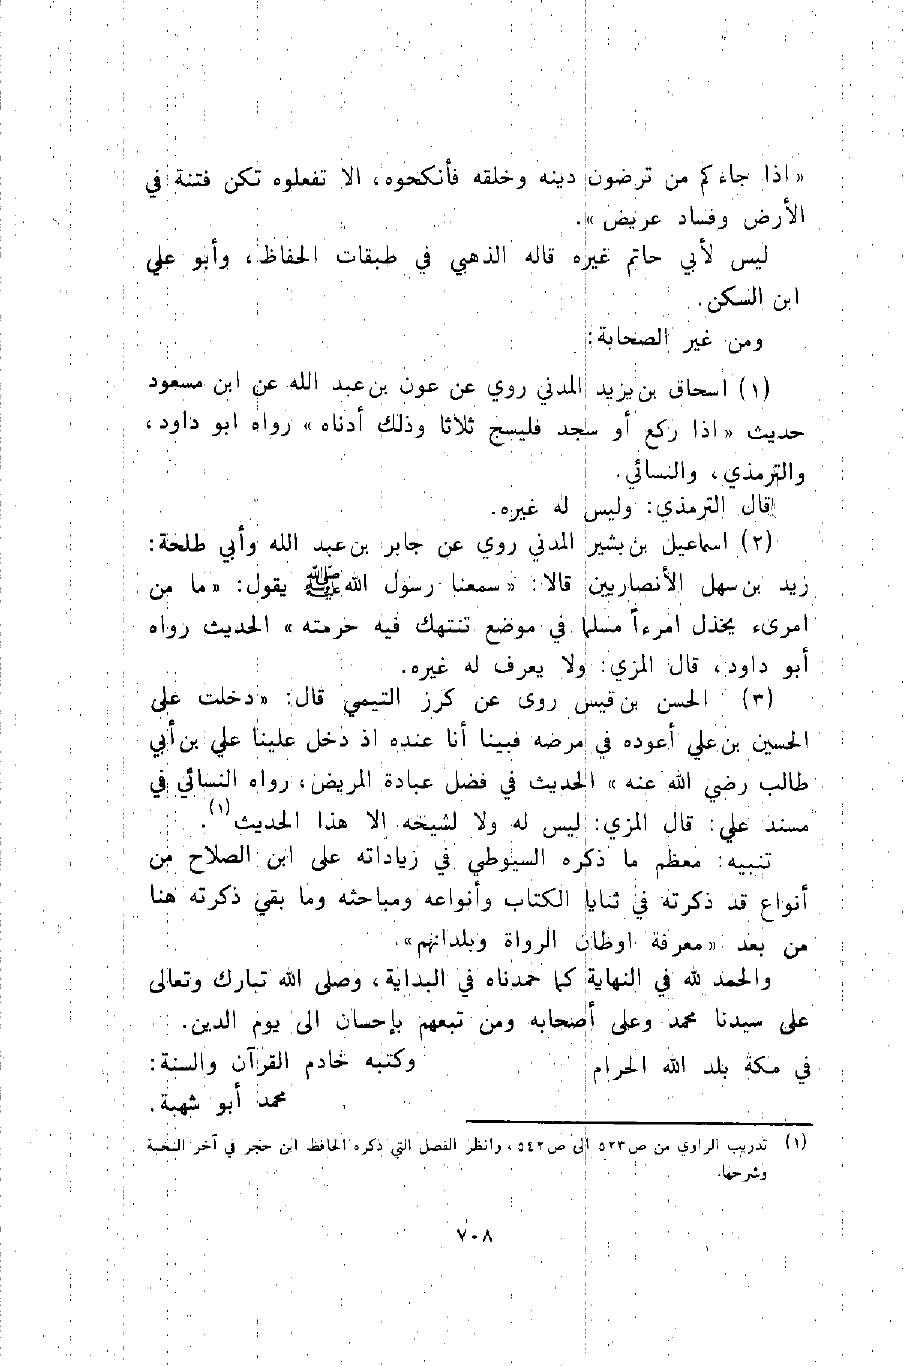 « اذا جاءكم من ترضون دينه وخلقه فأنكحوه، الا تفعلوه تكن فتنة في
الأرض وفساد عريض ».
ليس لأبي حاتم غيره قاله الذهبي في طبقات الحفاظ، وأبو علي
ابن السكن.
ومن غير الصحابة:
(١) اسحاق بن يزيد المدني روي عن عون بن عبد الله عن ابن مسعود
حديث « اذا ركع أو سجد فليسبح ثلاثا وذلك أدناه » رواه ابو داود،
والترمذي، والنسائي.
قال الترمذي: وليس له غيره.
(٢) اسماعيل بن بشير المدني روي عن جابر بن عبد الله وأبي طلحة:
زيد بن سهل الأنصاريين قالا: « سمعنا رسول الله ﷺ يقول: « ما من
امرىء يخذل امرءاً مسلما في موضع تنتهك فيه حرمته » الحديث رواه
أبو داود، قال المزي: ولا يعرف له غيره.
(٣) الحسن بن قيس روى عن كرز التيمي قال: « دخلت على
الحسين بن علي أعوده في مرضه فبينا أنا عنده اذ دخل علينا علي بن أبي
طالب رضي الله عنه » الحديث في فضل عبادة المريض، رواه النسائي في
مسند علي: قال المزي: ليس له ولا لشيخه الا هذا الحديث(١).
تنبيه: معظم ما ذكره السيوطي في زياداته على ابن الصلاح من
أنواع قد ذكرته في ثنايا الكتاب وأنواعه ومباحثه وما بقي ذكرته هنا
من بعد « معرفة اوطان الرواة وبلدانهم».
والحمد لله في النهاية كما حمدناه في البداية، وصلى الله تبارك وتعالى
على سيدنا محمد وعلى أصحابه ومن تبعهم بإحسان الى يوم الدين.
في مكة بلد الله الحرام وكتبه خادم القرآن والسنة:
محمد أبو شهبة.
(١) تدريب الراوي من ص٥٢٣ الى ص٥٤٢، وانظر الفصل التي ذكره الحافظ ابن حجر في آخر النخبة
وشرحها.
٧٠٨